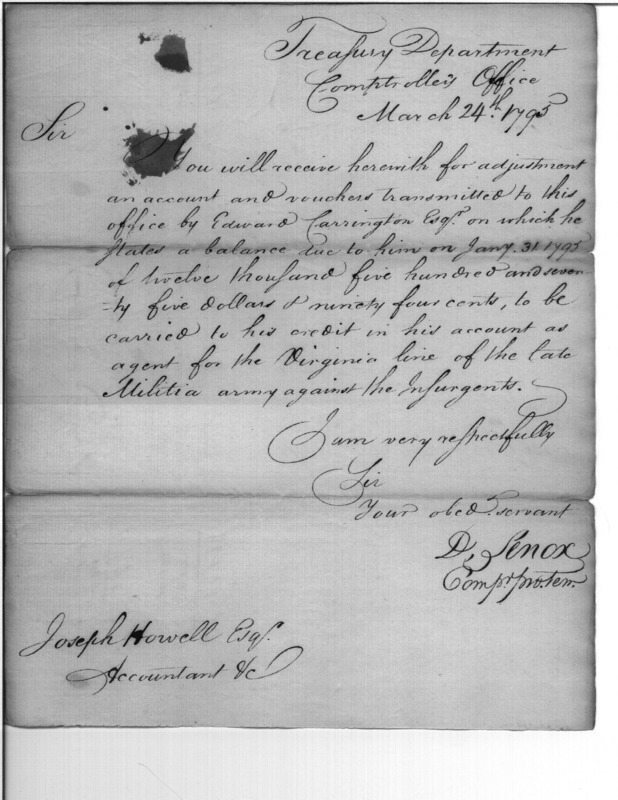 Treasury Department
Comptroller's Office
March 24th. 1795
Sir
You will receive herewith for adjustment
an account and vouchers transmitted to this
office by Edward Carrington Esqr. on which he
states a balance due to him on Jany. 31 1795
of twelve thousand five hundred and seven-
-ty five dollars & ninety four cents, to be
carried to his credit in his account as
agent for the Virginia line of the late
Militia army against the Insurgents.
I am very respectfully
Sir
Your obedt. servant
D, Lenox
Compr. pro. tem.
Joseph Howell Esqr.
Accountant &c